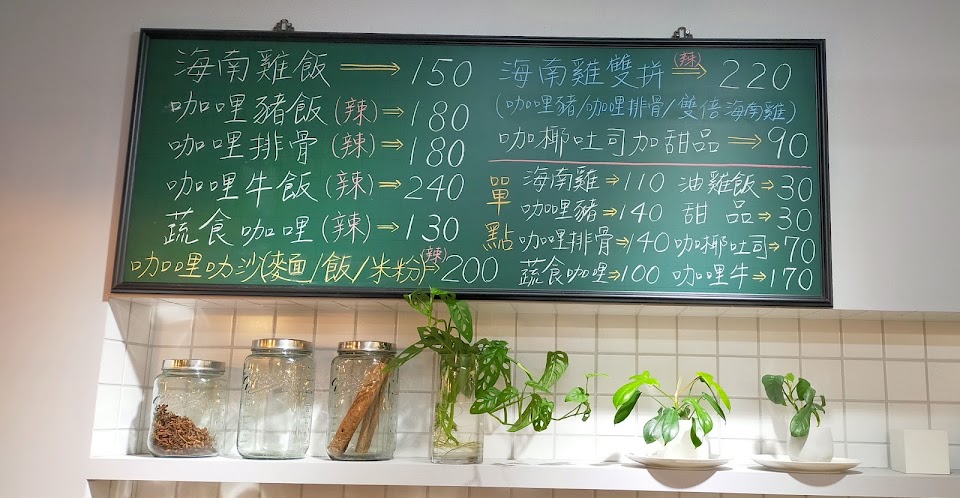 海南雞飯→150
咖哩豬飯(辣)→180
咖哩排骨(辣)→180
咖哩牛飯(辣)⇒240
蔬食咖哩(辣)⇒130
咖哩叻沙(麵/飯/米粉)(辣)⇒200
海南雞雙拼(辣)⇒220
(咖哩豬/咖哩排骨/雙倍海南雞)
咖椰吐司加甜品→90
單點
海南雞⇒110 油雞飯⇒30
咖哩豬⇒140 甜品⇒30
咖哩排骨⇒140 咖椰吐司⇒70
蔬食咖哩⇒100 咖哩牛⇒170